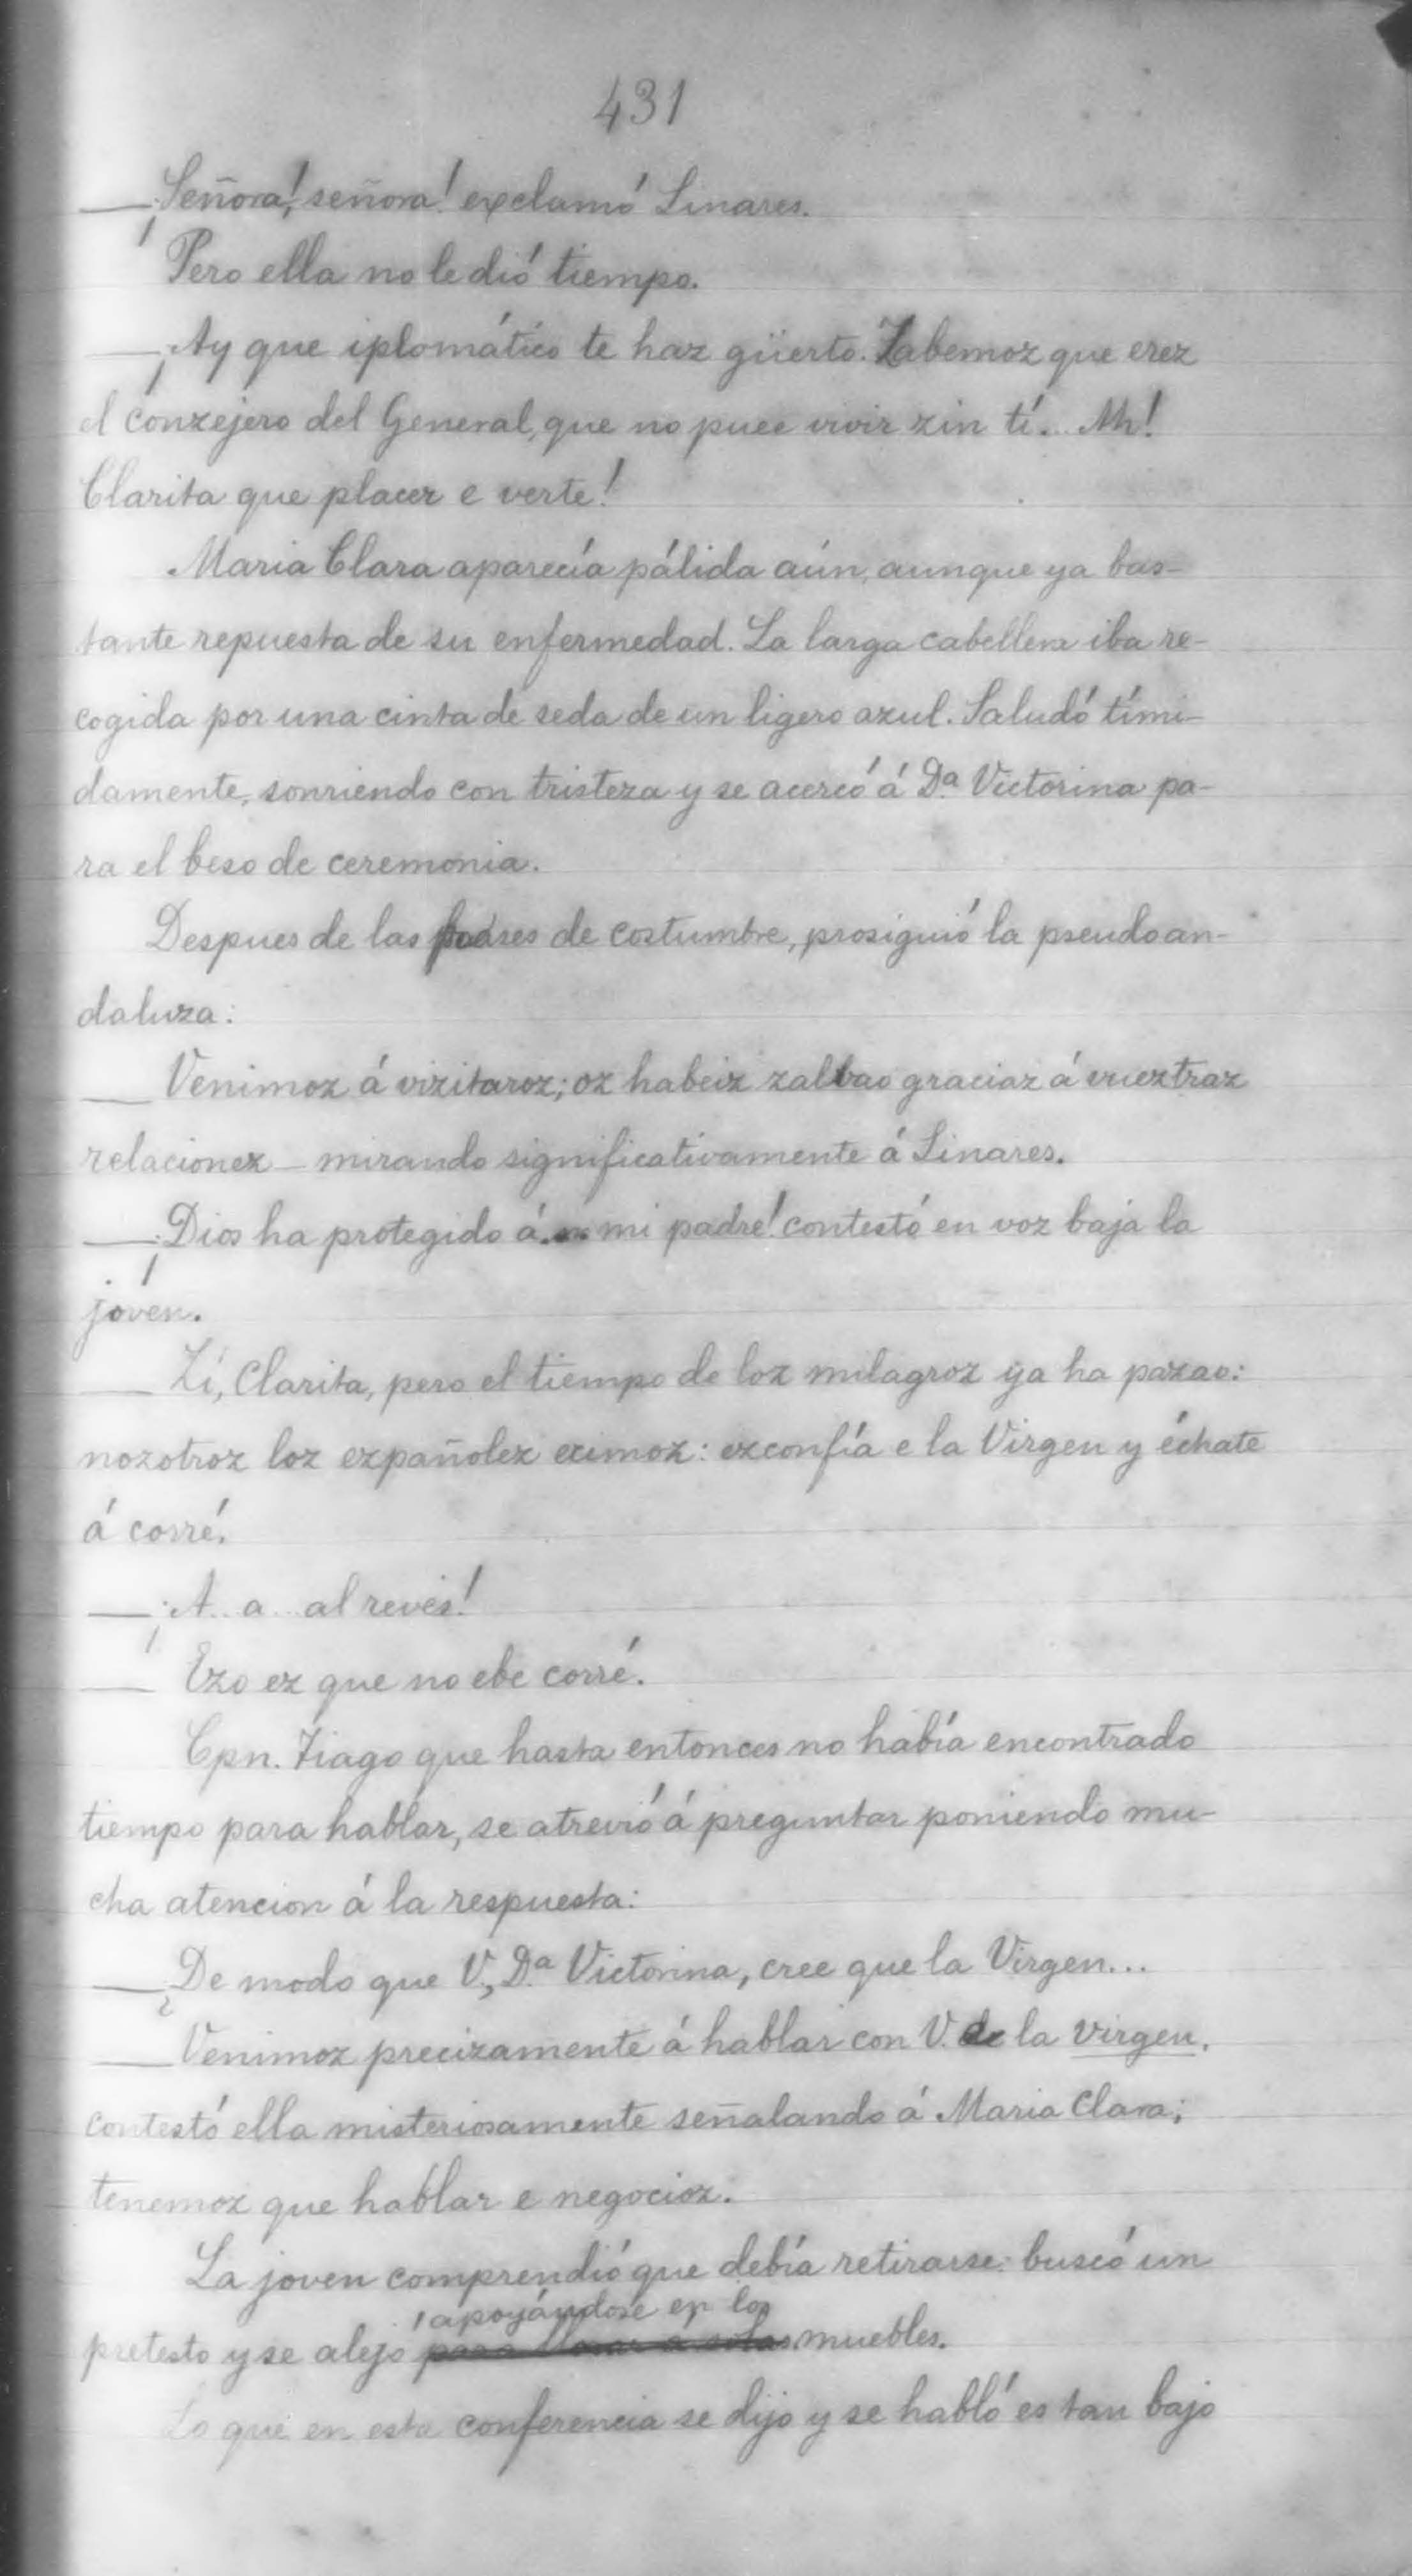 431
— ¡Señora! ¡señora! exclamó Linares.
Pero ella no le dió tiempo.
— ¡Ay que iplomático te haz güerto. Zabemoz que erez
el conzejero del General, que no puee vivir zin tí... Ah!
Clarita que placer e verte!
Maria Clara aparecía pálida aún, aunque ya bas-
tante repuesta de su enfermedad. La larga cabellera iba re-
cogida por una cinta de seda de un ligero azul. Saludó tími-
damente, sonriendo con tristeza y se acercó á Dª Victorina pa-
ra el beso de ceremonia.
Despues de las frases de costumbre, prosiguió la pseudoan-
daluza:
— Venimoz á vizitaroz; oz habeiz zalvao graciaz á vueztraz
relacionez — mirando significativamente á Linares.
— ¡Dios ha protegido á mi padre! contestó en voz baja la
jóven.
— Zí, Clarita, pero el tiempo de loz milagroz ya ha pazao:
nozotroz loz ezpañolez ecimoz: ezconfía e la Virgen y échate
á corré.
— ¡A.. a... al revés!
— Ezo ez que no ebe corré.
Cpn. Tiago que hasta entonces no había encontrado
tiempo para hablar, se atrevió á preguntar poniendo mu-
cha atencion á la respuesta:
— ¿De modo que V., Dª Victorina, cree que la Virgen...
— Venimoz precizamente á hablar con V. de la virgen,
contestó ella misteriosamente señalando á Maria Clara;
tenemoz que hablar e negocioz.
La joven comprendió que debía retirarse: buscó un
apoyándose en los
pretesto y se alejó para llorar a solas muebles.
Lo que en esta conferencia se dijo y se habló es tan bajo